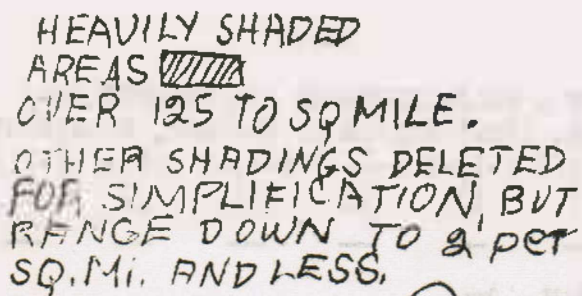 HEAVILY SHADED
AREAS
OVER 125 TO SQ MILE.
OTHER SHADINGS DELETED
FOR SIMPLIFICATION, BUT
RANGE DOWN TO 2 per
SQ. Mi. AND LESS.